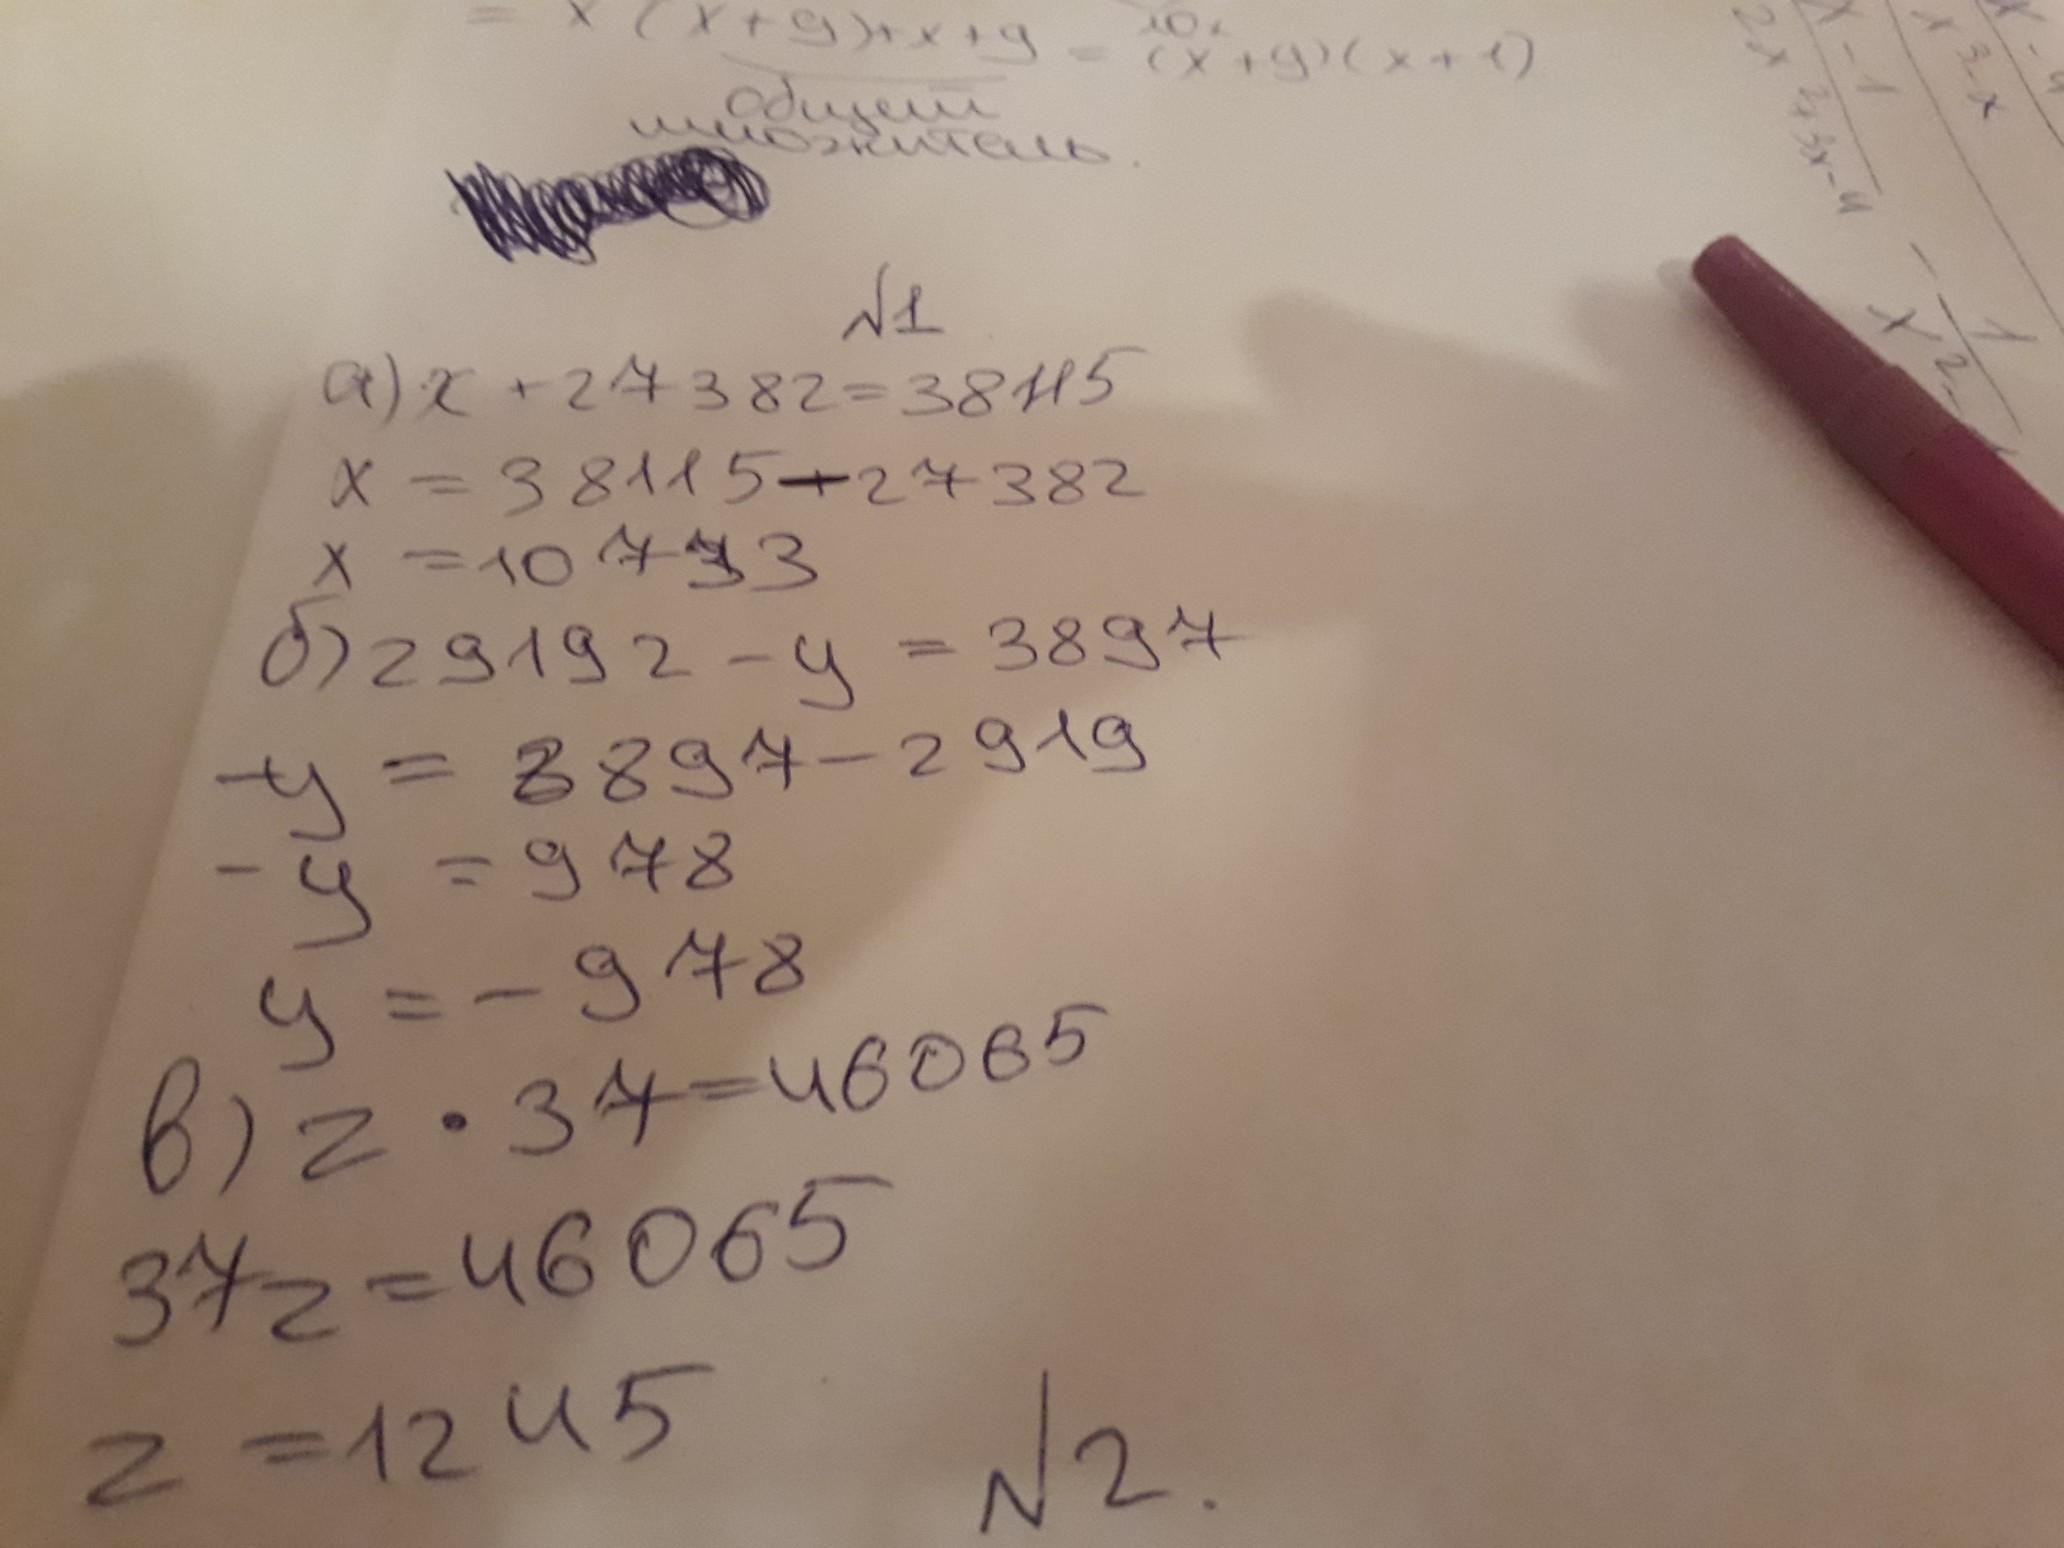 = x(x+y)+x+y = (x+y)(x+1)
общий
множитель.
№1
а) x + 27382 = 38115
x = 38115 - 27382
x = 10733
б) 29192 - y = 3897
-y = 3897 - 2919
-y = 978
y = -978
в) z · 37 = 46065
37z = 46065
z = 1245
№2.